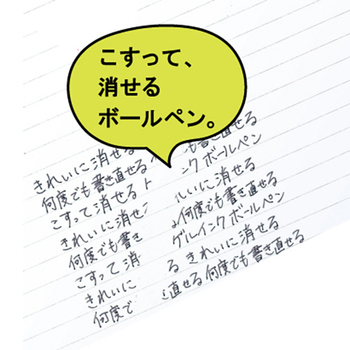 こすって、
消せる
ボールペン。
きれいに消せる
も書き直せる
何度でも書き直せる
ンク ボールペン
こすって 消せる
れいに消せる
きれいに消せ
何度でも書き直せる
何度でも書き
ゲルインク ボールペン
こすって 消
る きれいに消せる
きれいに
直せる 何度でも書き直せる
何度で